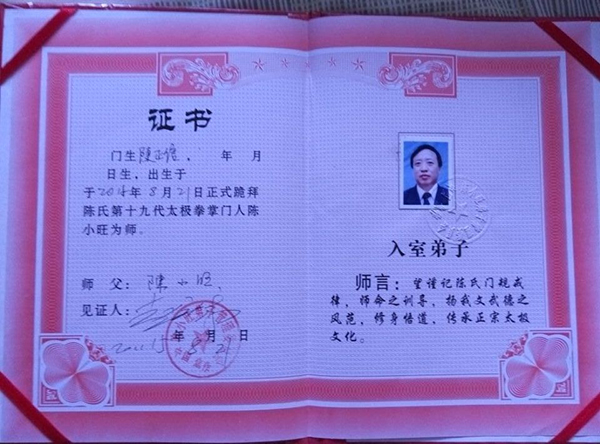 证书
门生陈正俊, 年 月
日生，出生于
于2014年8月21日正式跪拜
陈氏第十九代太极拳掌门人陈
小旺为师。
师 父：陈小旺
见证人：
年 月 日
入室弟子
师言：望谨记陈氏门规戒
律，师命之训导，扬我文武德之
风范，修身悟道，传承正宗太极
文化。